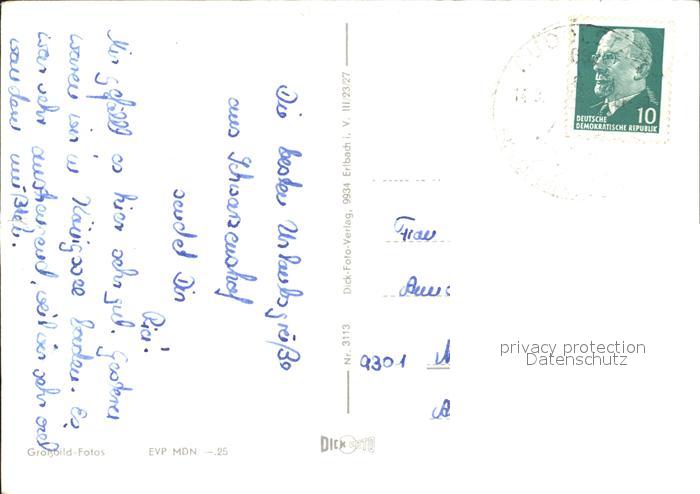 Die besten Urlaubsgrüße
aus Schwarzenshof
sendet Dir
Rici.
Mir gefällt es hier sehr gut. Gestern
waren wir in Königsee baden. Es
war sehr anstrengend, weil wir sehr viel
wandern mußten.
Großbild-Fotos EVP MDN —.25
Nr. 3113 Dick-Foto-Verlag, 9934 Erlbach i. V. III/23/27
DICK FOTO
DEUTSCHE
DEMOKRATISCHE REPUBLIK
10
Frau
9301
privacy protection
Datenschutz